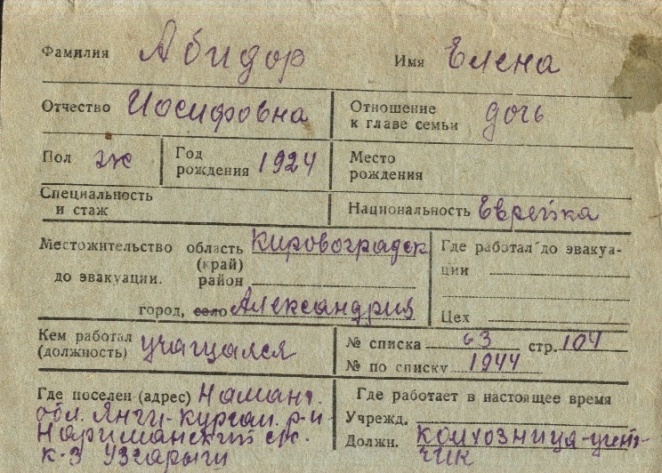 Фамилия Абидор Имя Елена
Отчество Иосифовна Отношение к главе семьи дочь
Пол ж Год рождения 1924 Место рождения
Специальность и стаж Национальность Еврейка
Местожительство до эвакуации. область (край) Кировоградск
район
город, село Александрия
Где работал до эвакуации
Цех
Кем работал (должность) учащался
№ списка 63 стр. 104
№ по списку 1944
Где поселен (адрес) Наманг.
обл. Янги-Курган. р-н
Нариманский с/с.
к-з
Где работает в настоящее время
Учрежд.
Должн. колхозница-